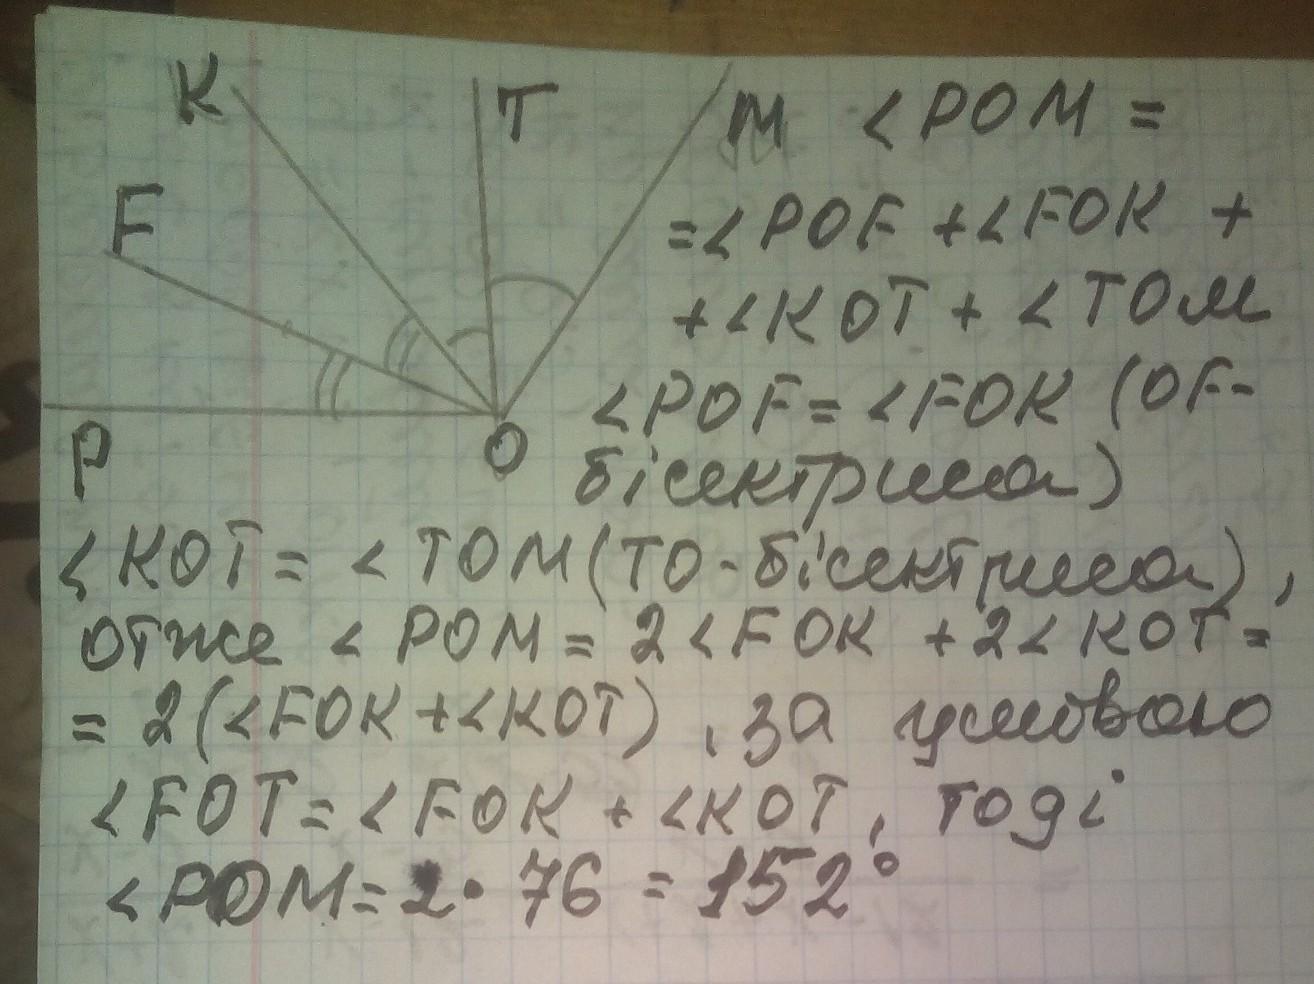 K
T
M
F
P
O
∠POM =
=∠POF +∠FOK +
+∠KOT + ∠TOM
∠POF = ∠FOK (OF-
бісектриса)
∠KOT = ∠TOM(TO-бісектриса),
отже ∠POM = 2∠FOK + 2∠KOT =
= 2(∠FOK +∠KOT), за умовою
∠FOT= ∠FOK + ∠KOT, тоді
∠POM= 2· 76 = 152°